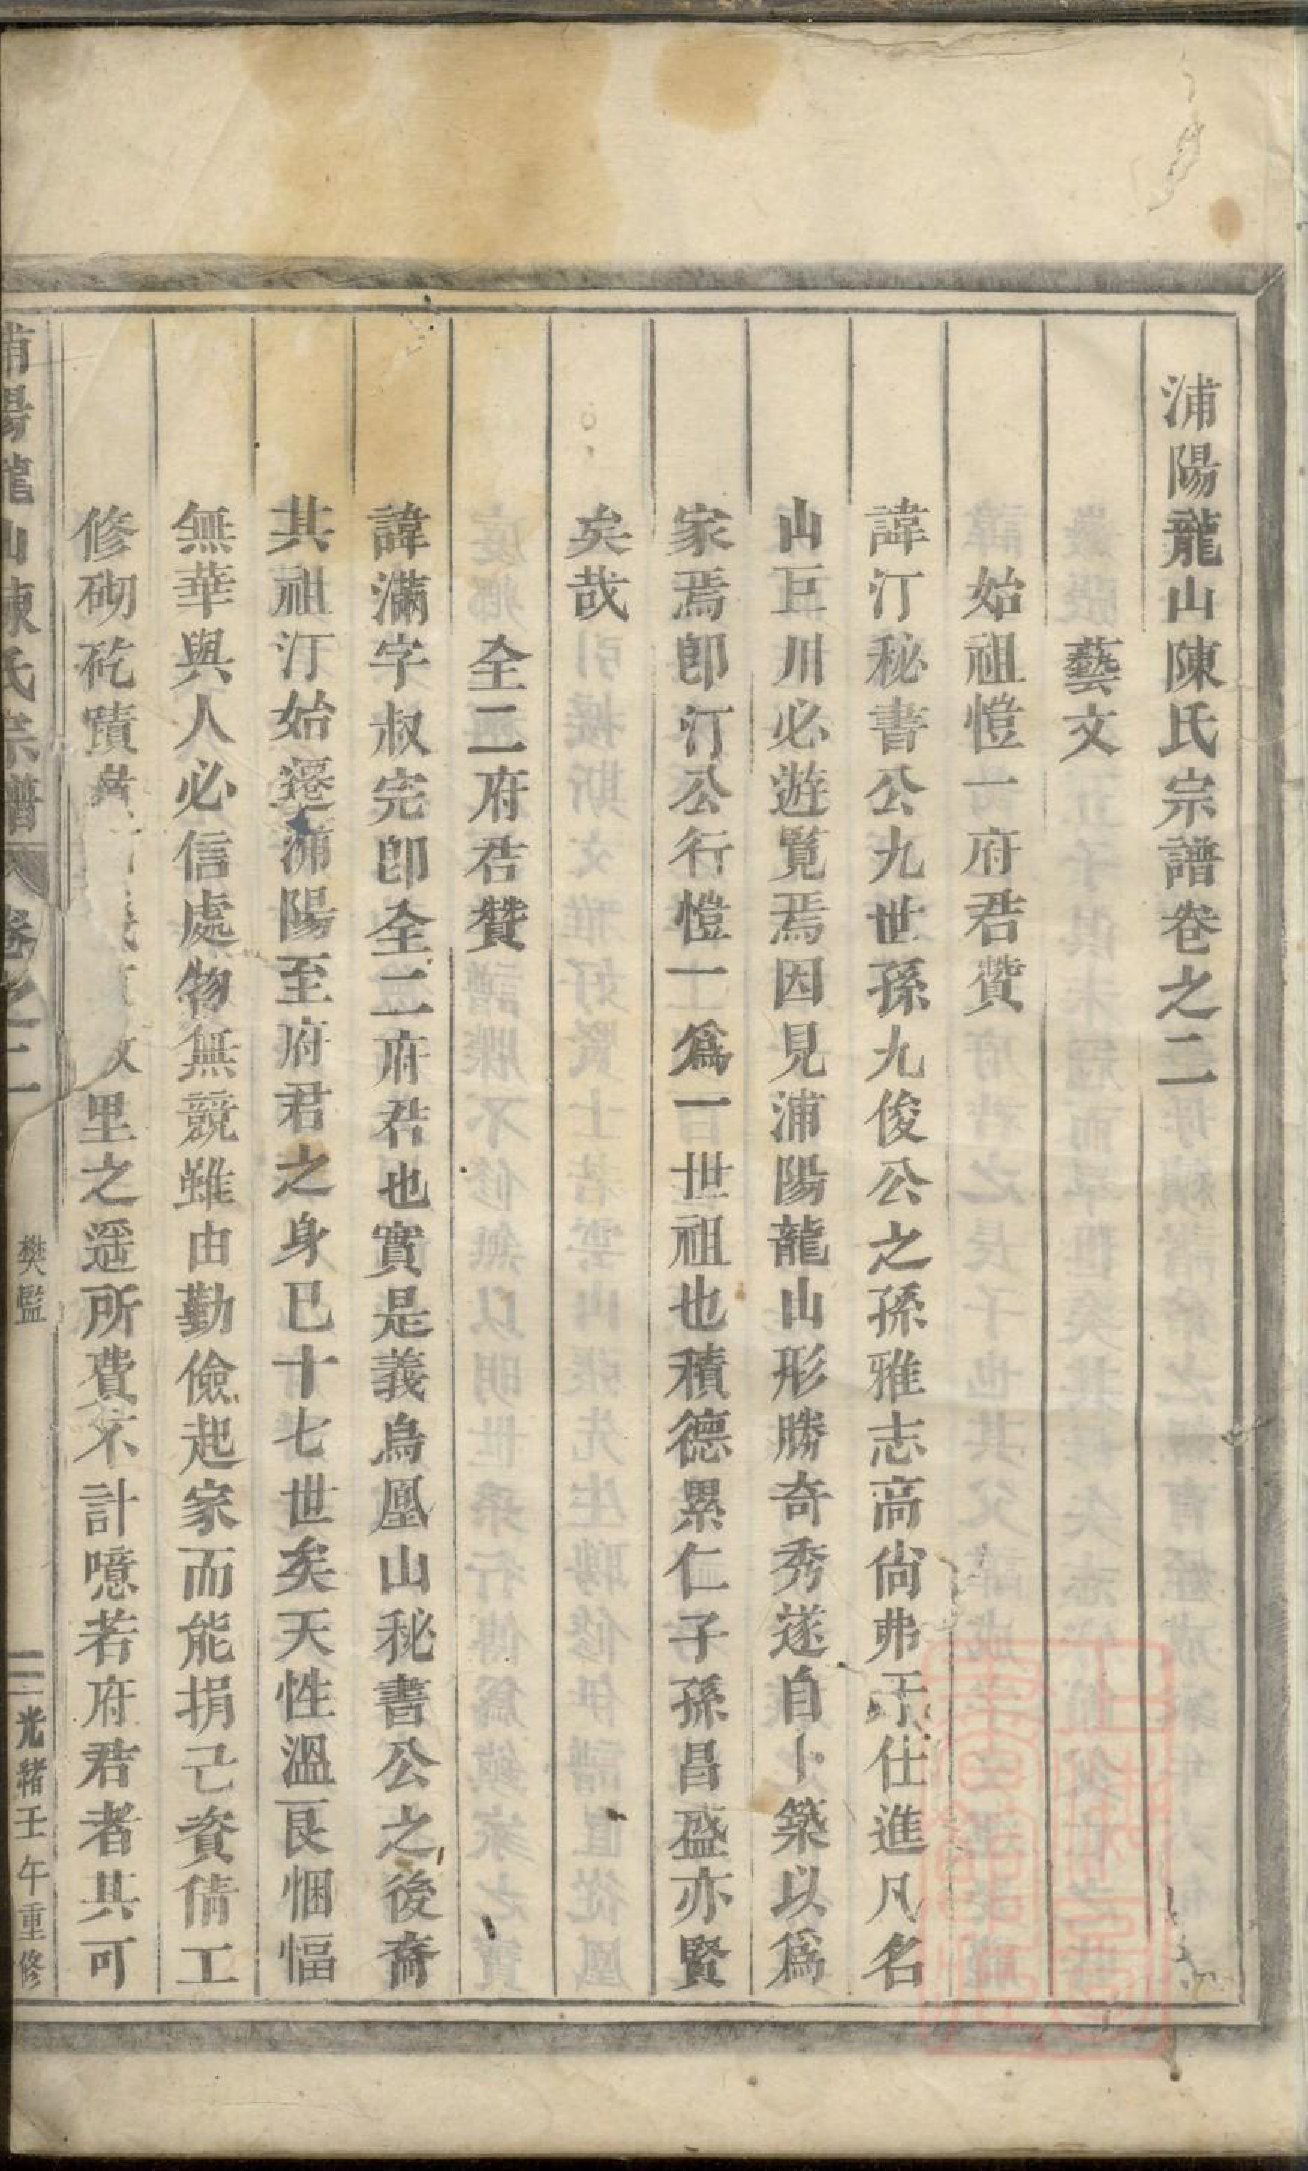 浦陽龍山陳氏宗譜卷之二
藝文
始祖愷一府君贊
諱汀秘書公九世孫九俊公之孫雅志高尙弗干仕進凡名
山巨川必遊覽焉因見浦陽龍山形勝奇秀遂自卜築以爲
家焉卽汀公行愷一爲一世祖也積德累仁子孫昌盛亦賢
矣哉
全二府君贊
諱滿字叔完卽全二府君也實是義烏鳳山秘書公之後裔
其祖汀始遷浦陽至府君之身已十七世矣天性溫良悃愊
無華與人必信處物無競雖由勤儉起家而能捐己資倩工
修砌矻蹟里之遥所費不計噫若府君者其可
浦陽龍山陳氏宗譜 卷之二 樊監 光緒壬午重修